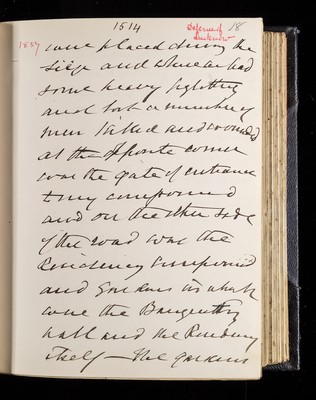 1514
Defence of
Lucknow
18
1857
were placed during the
siege and where we had
some heavy fighting
and lost a number of
men killed and wounded
at the opposite corner
was the gate of entrance
to my compound
and on the other side
of the road was the
Residency Compound
and Gardens in which
were the Banqueting
hall and the Residency
itself — the gardens